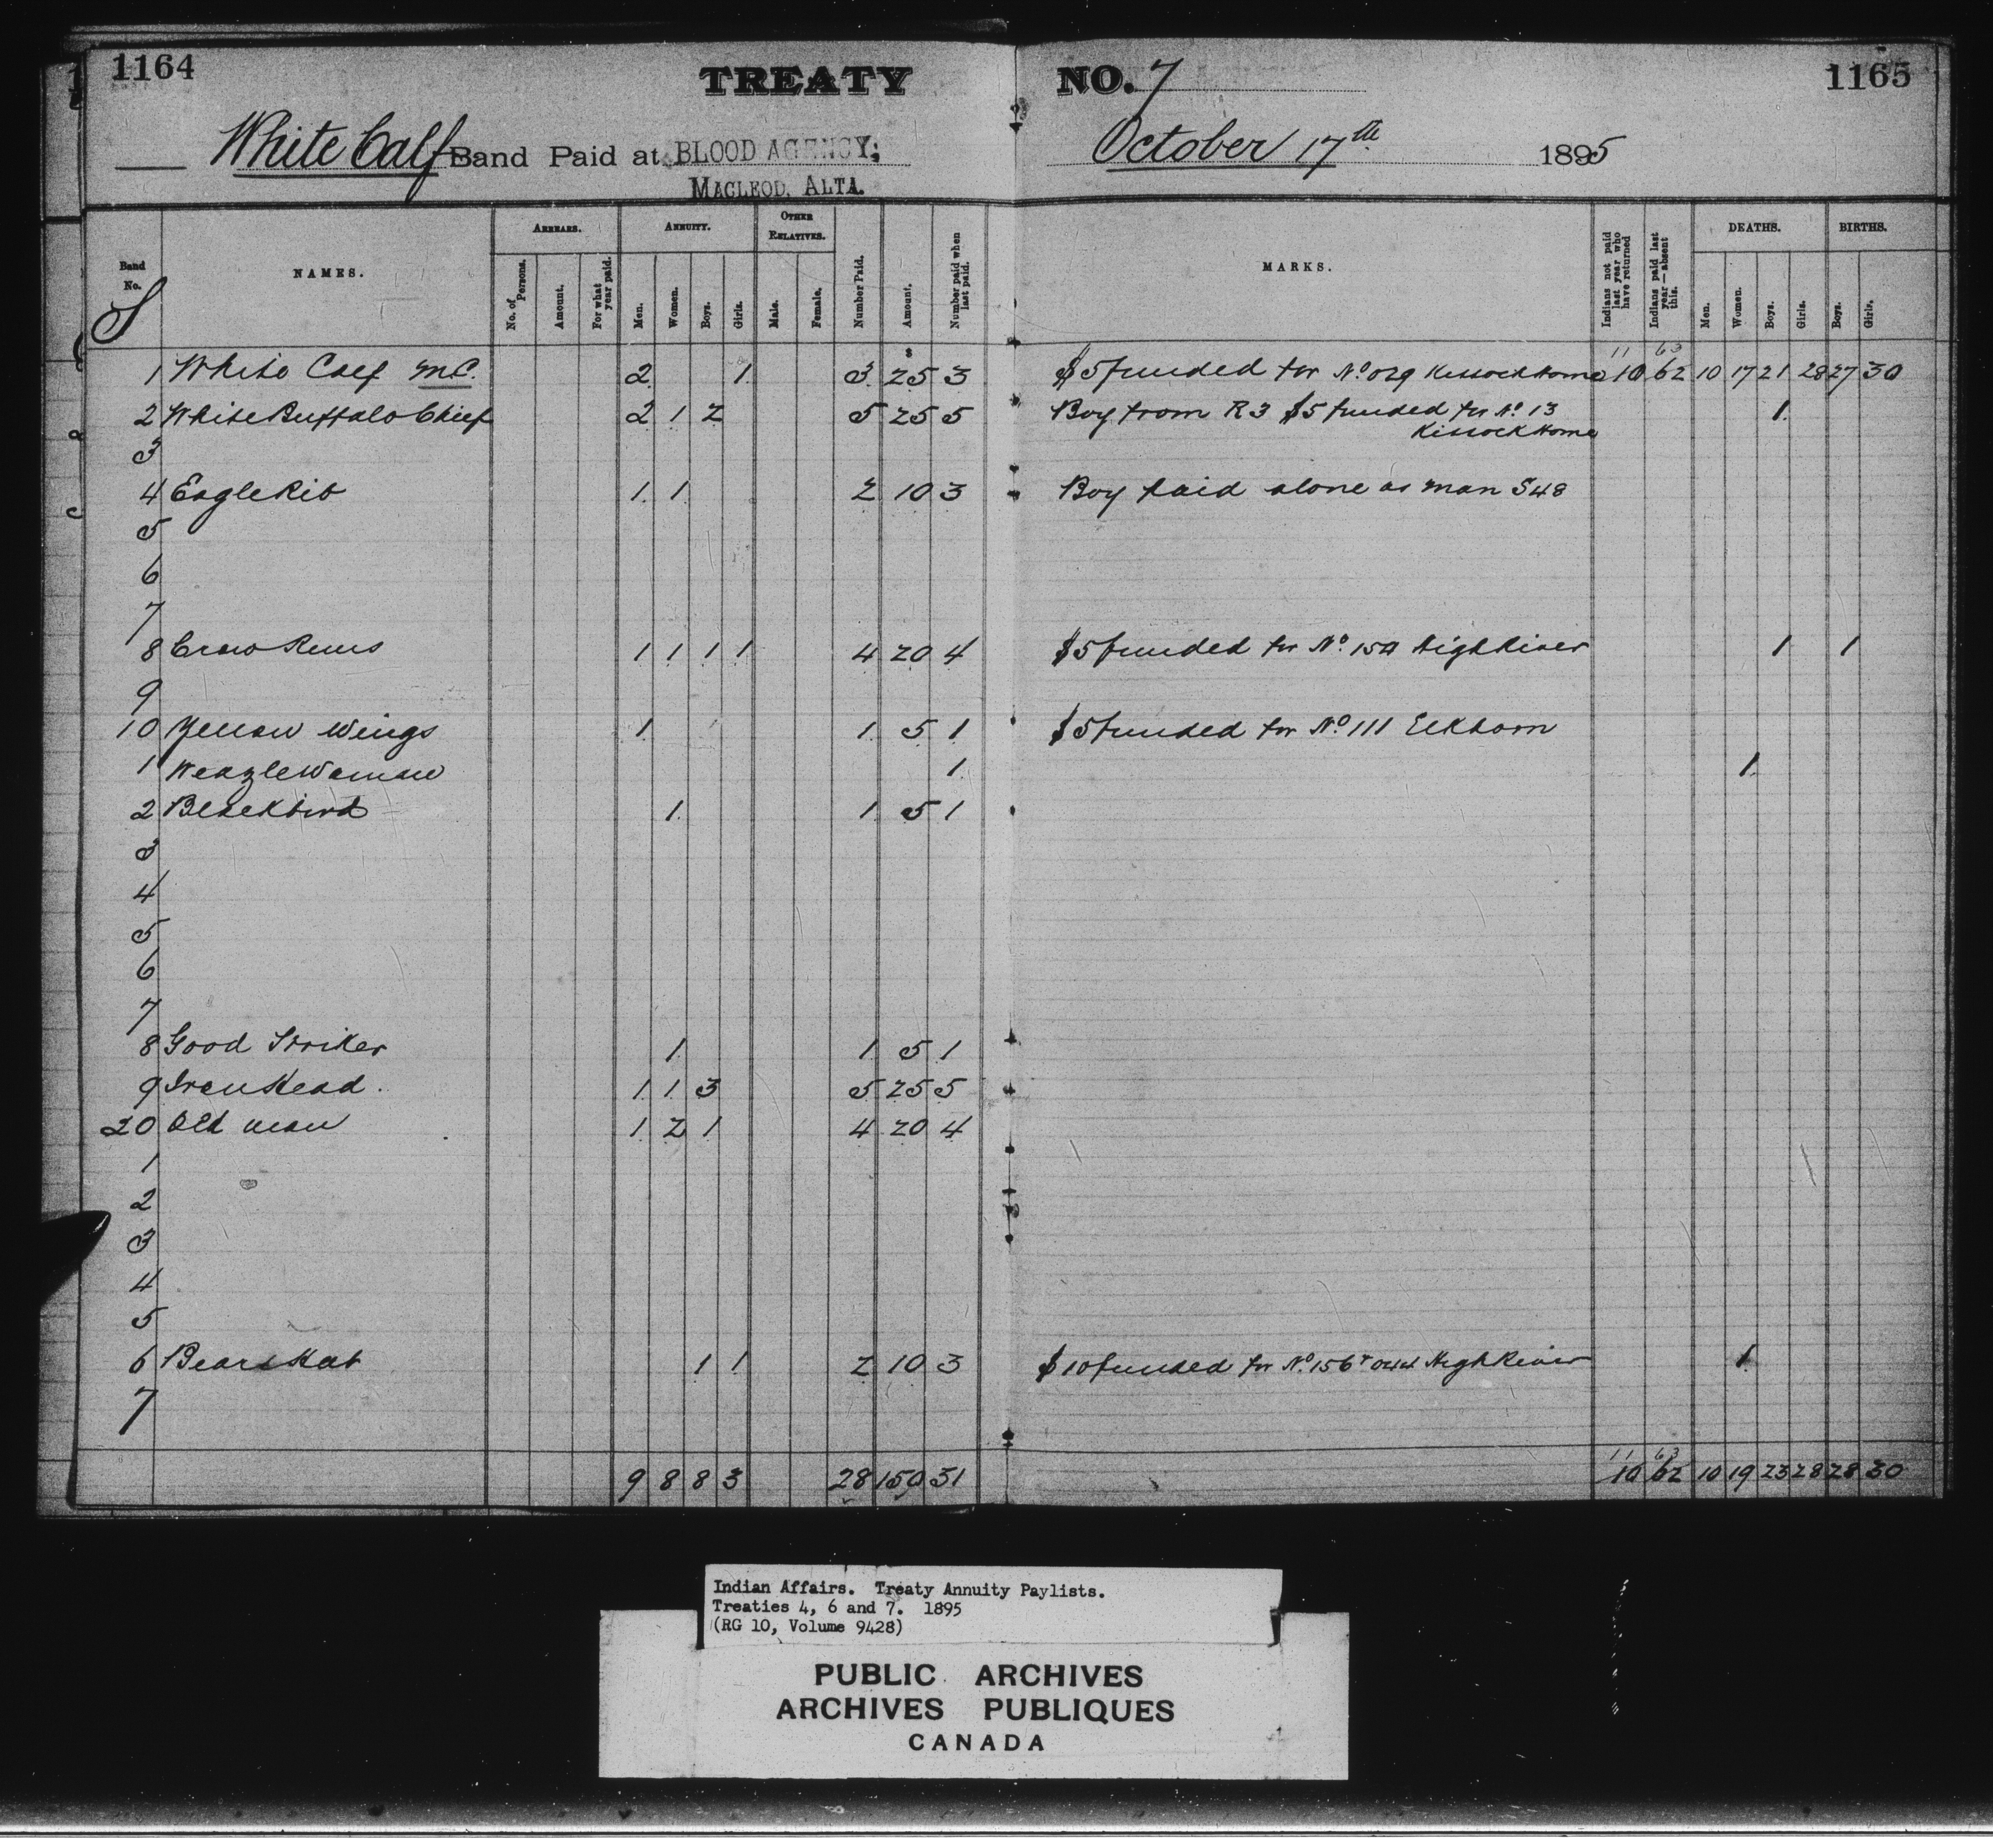 1164
TREATY NO. 7
1165
White Calf Band Paid at BLOOD AGENCY; October 17th 1895
MACLEOD, ALTA.
Band No. NAMES. ARREARS. No. of Persons. Amount. For what year paid. ANNUITY. Men. Women. Boys. Girls. OTHER RELATIVES. Male. Female. Number Paid. Amount. Number paid when last paid. MARKS. Indians not paid last year who have returned Indians paid last year—absent this. DEATHS. Men. Women. Boys. Girls. BIRTHS. Boys. Girls.
S
11 63
1 White Calf M.C. 2 1 3 25 3 $5 funded for No 029 Kissock Home 10 62 10 17 21 28 27 30
2 White Buffalo Chief 2 1 2 5 25 5 Boy from R3 $5 funded for No 13 1
Kissock Home
3
4 Eagle Rib 1 1 2 10 3 Boy paid alone as man S48
5
6
7
8 Crow Runs 1 1 1 1 4 20 4 $5 funded for No 15A High River 1 1
9
10 Yellow Wings 1 1 5 1 $5 funded for No 111 Elkhorn
1 Weazle Woman 1 1
2 Blackbird 1 1 5 1
3
4
5
6
7
8 Good Striker 1 1 5 1
9 Iron Head 1 1 3 5 25 5
20 Old man 1 2 1 4 20 4
1
2
3
4
5
6 Bears Hat 1 1 2 10 3 $10 funded for No 156 + 044 High River 1
7
11 63
9 8 8 3 28 150 31 10 62 10 19 23 28 28 30
Indian Affairs. Treaty Annuity Paylists.
Treaties 4, 6 and 7. 1895
(RG 10, Volume 9428)
PUBLIC ARCHIVES
ARCHIVES PUBLIQUES
CANADA